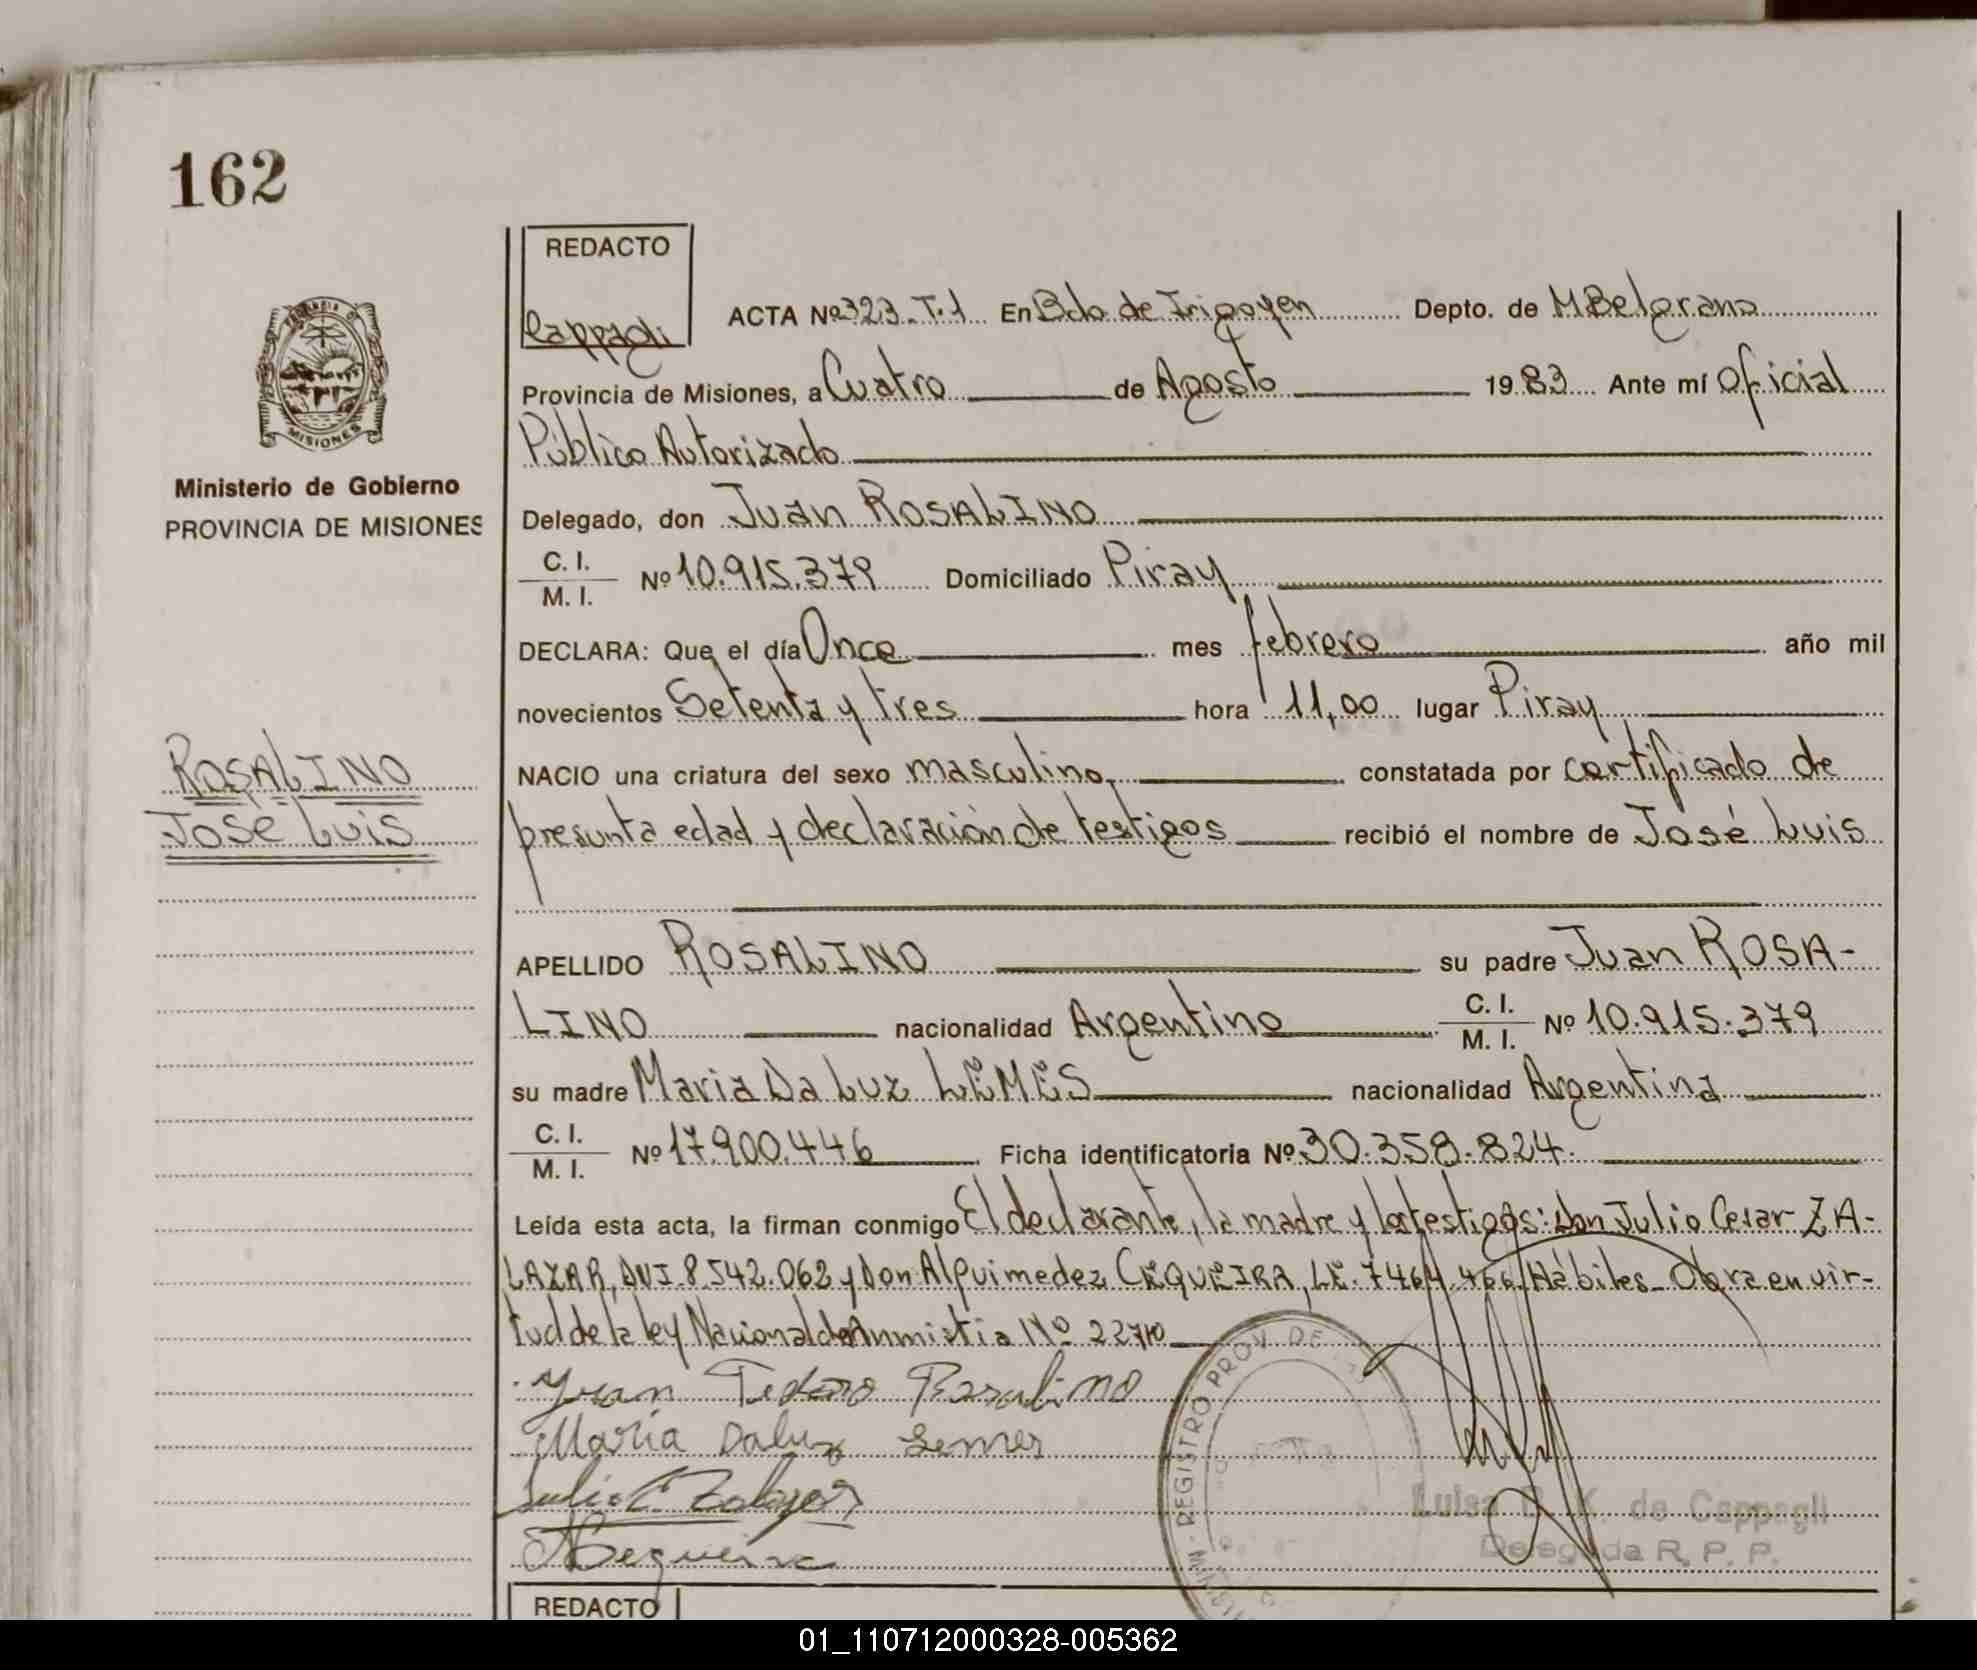 162
REDACTO
Cappagli
ACTA Nº 323-T.1 En Bdo de Irigoyen Depto. de M Belgrano
Provincia de Misiones, a Cuatro de Agosto 1983 Ante mí Oficial
Público Autorizado
Delegado, don Juan ROSALINO
C. I.
M. I. Nº 10.915.379 Domiciliado Piray
DECLARA: Que el día Once mes febrero año mil
novecientos Setenta y tres hora 11,00 lugar Piray
NACIO una criatura del sexo masculino, constatada por certificado de
presunta edad y declaración de testigos recibió el nombre de José Luis
APELLIDO ROSALINO su padre Juan ROSA-
LINO nacionalidad Argentino C. I.
M. I. Nº 10.915.379
su madre Maria Da Luz LEMES nacionalidad Argentina
C. I.
M. I. Nº 17.900.446 Ficha identificatoria Nº 30.358.824.
Leída esta acta, la firman conmigo El declarante, la madre y los testigos: Don Julio Cesar ZA-
LAZAR, DNI. 8.542.062 y Don Alquimedez CEQUEIRA, LE. 7464.466. Hábiles_ Obra en vir-
tud de la ley Nacional de Anmistia Nº 22710
Juan Tedoro Rosalino
Maria Daluz Lemes
Julio C. Zalazar
A Cequeira
MISIONES
Ministerio de Gobierno
PROVINCIA DE MISIONES
ROSALINO
José Luis
REGISTRO PROV. DE
Luisa K. de Cappagli
Delegada R. P. P.
REDACTO
01_110712000328-005362